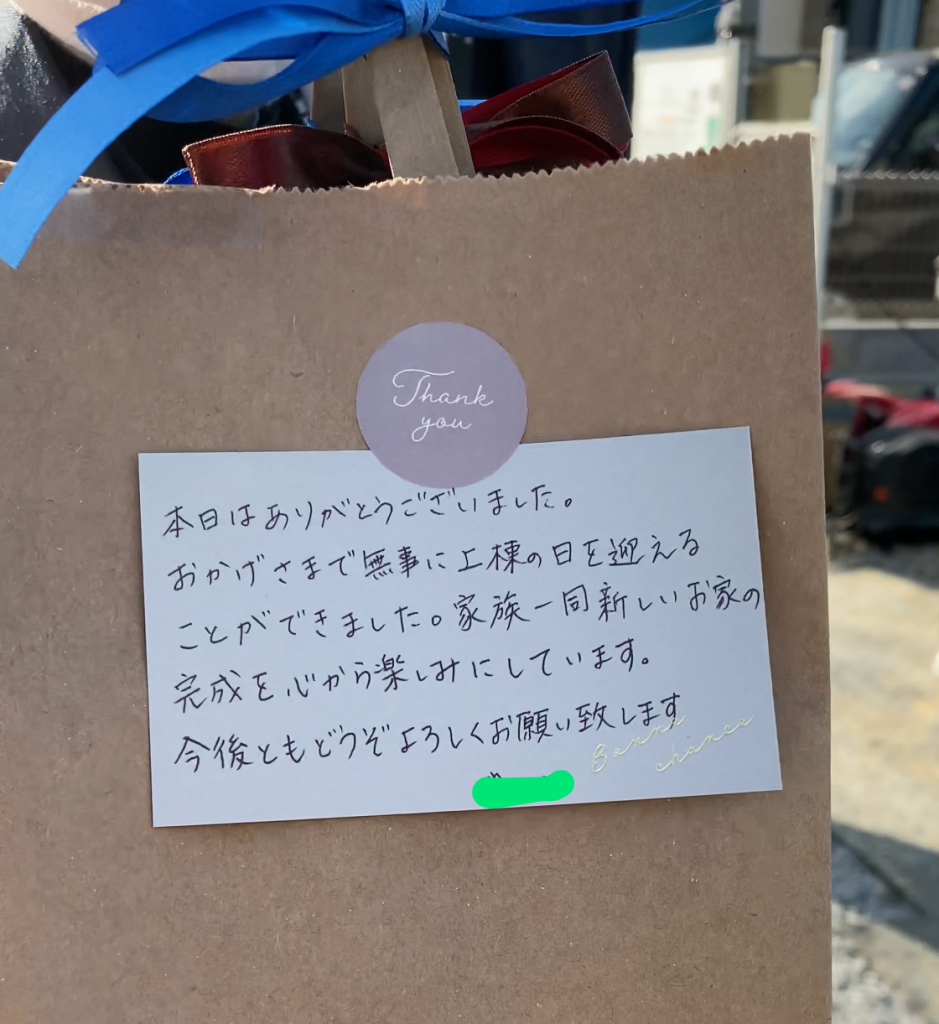 Thank
you
本日はありがとうございました。
おかげさまで無事に上棟の日を迎える
ことができました。家族一同新しいお家の
完成を心から楽しみにしています。
今後ともどうぞよろしくお願い致します
Bonne
chance